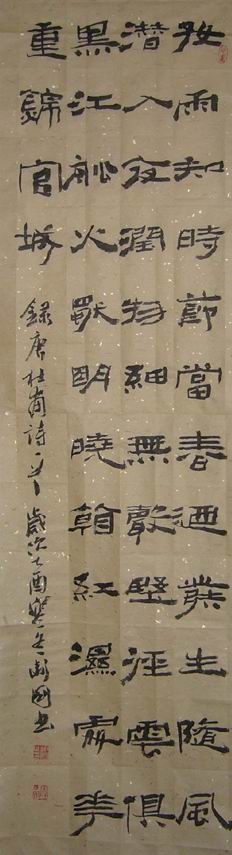 好雨知時節當春迺發生隨風
潛入夜潤物細無聲野徑雲俱
黑江船火獨明曉看紅濕處華
重錦官城
錄唐杜甫詩一首 歲次乙酉冬國書